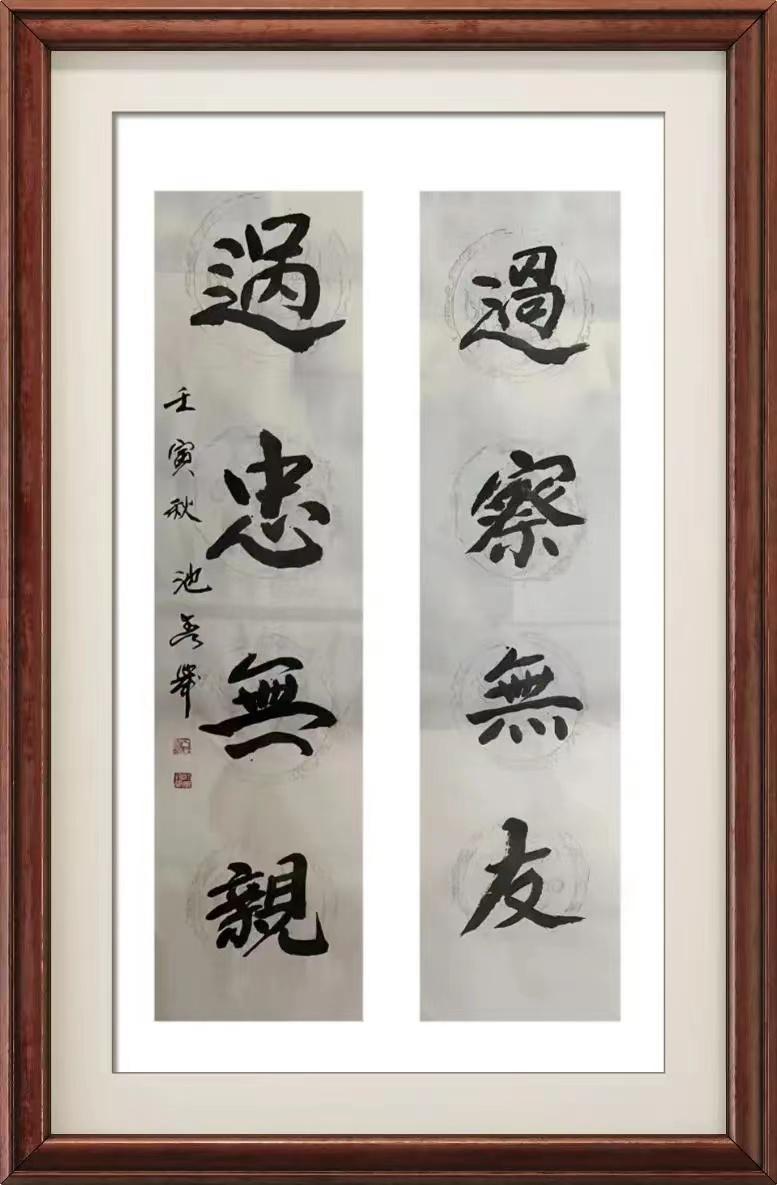 過察無友
過忠無親
壬寅秋 池